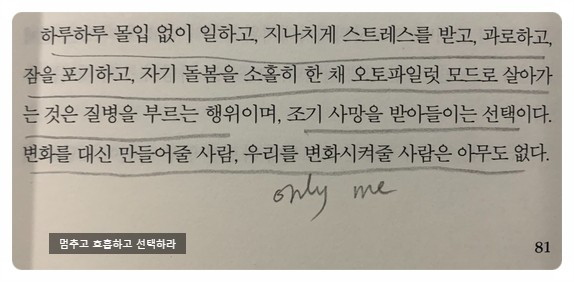 하루하루 몰입 없이 일하고, 지나치게 스트레스를 받고, 과로하고,
잠을 포기하고, 자기 돌봄을 소홀히 한 채 오토파일럿 모드로 살아가
는 것은 질병을 부르는 행위이며, 조기 사망을 받아들이는 선택이다.
변화를 대신 만들어줄 사람, 우리를 변화시켜줄 사람은 아무도 없다.
only me
멈추고 호흡하고 선택하라
81